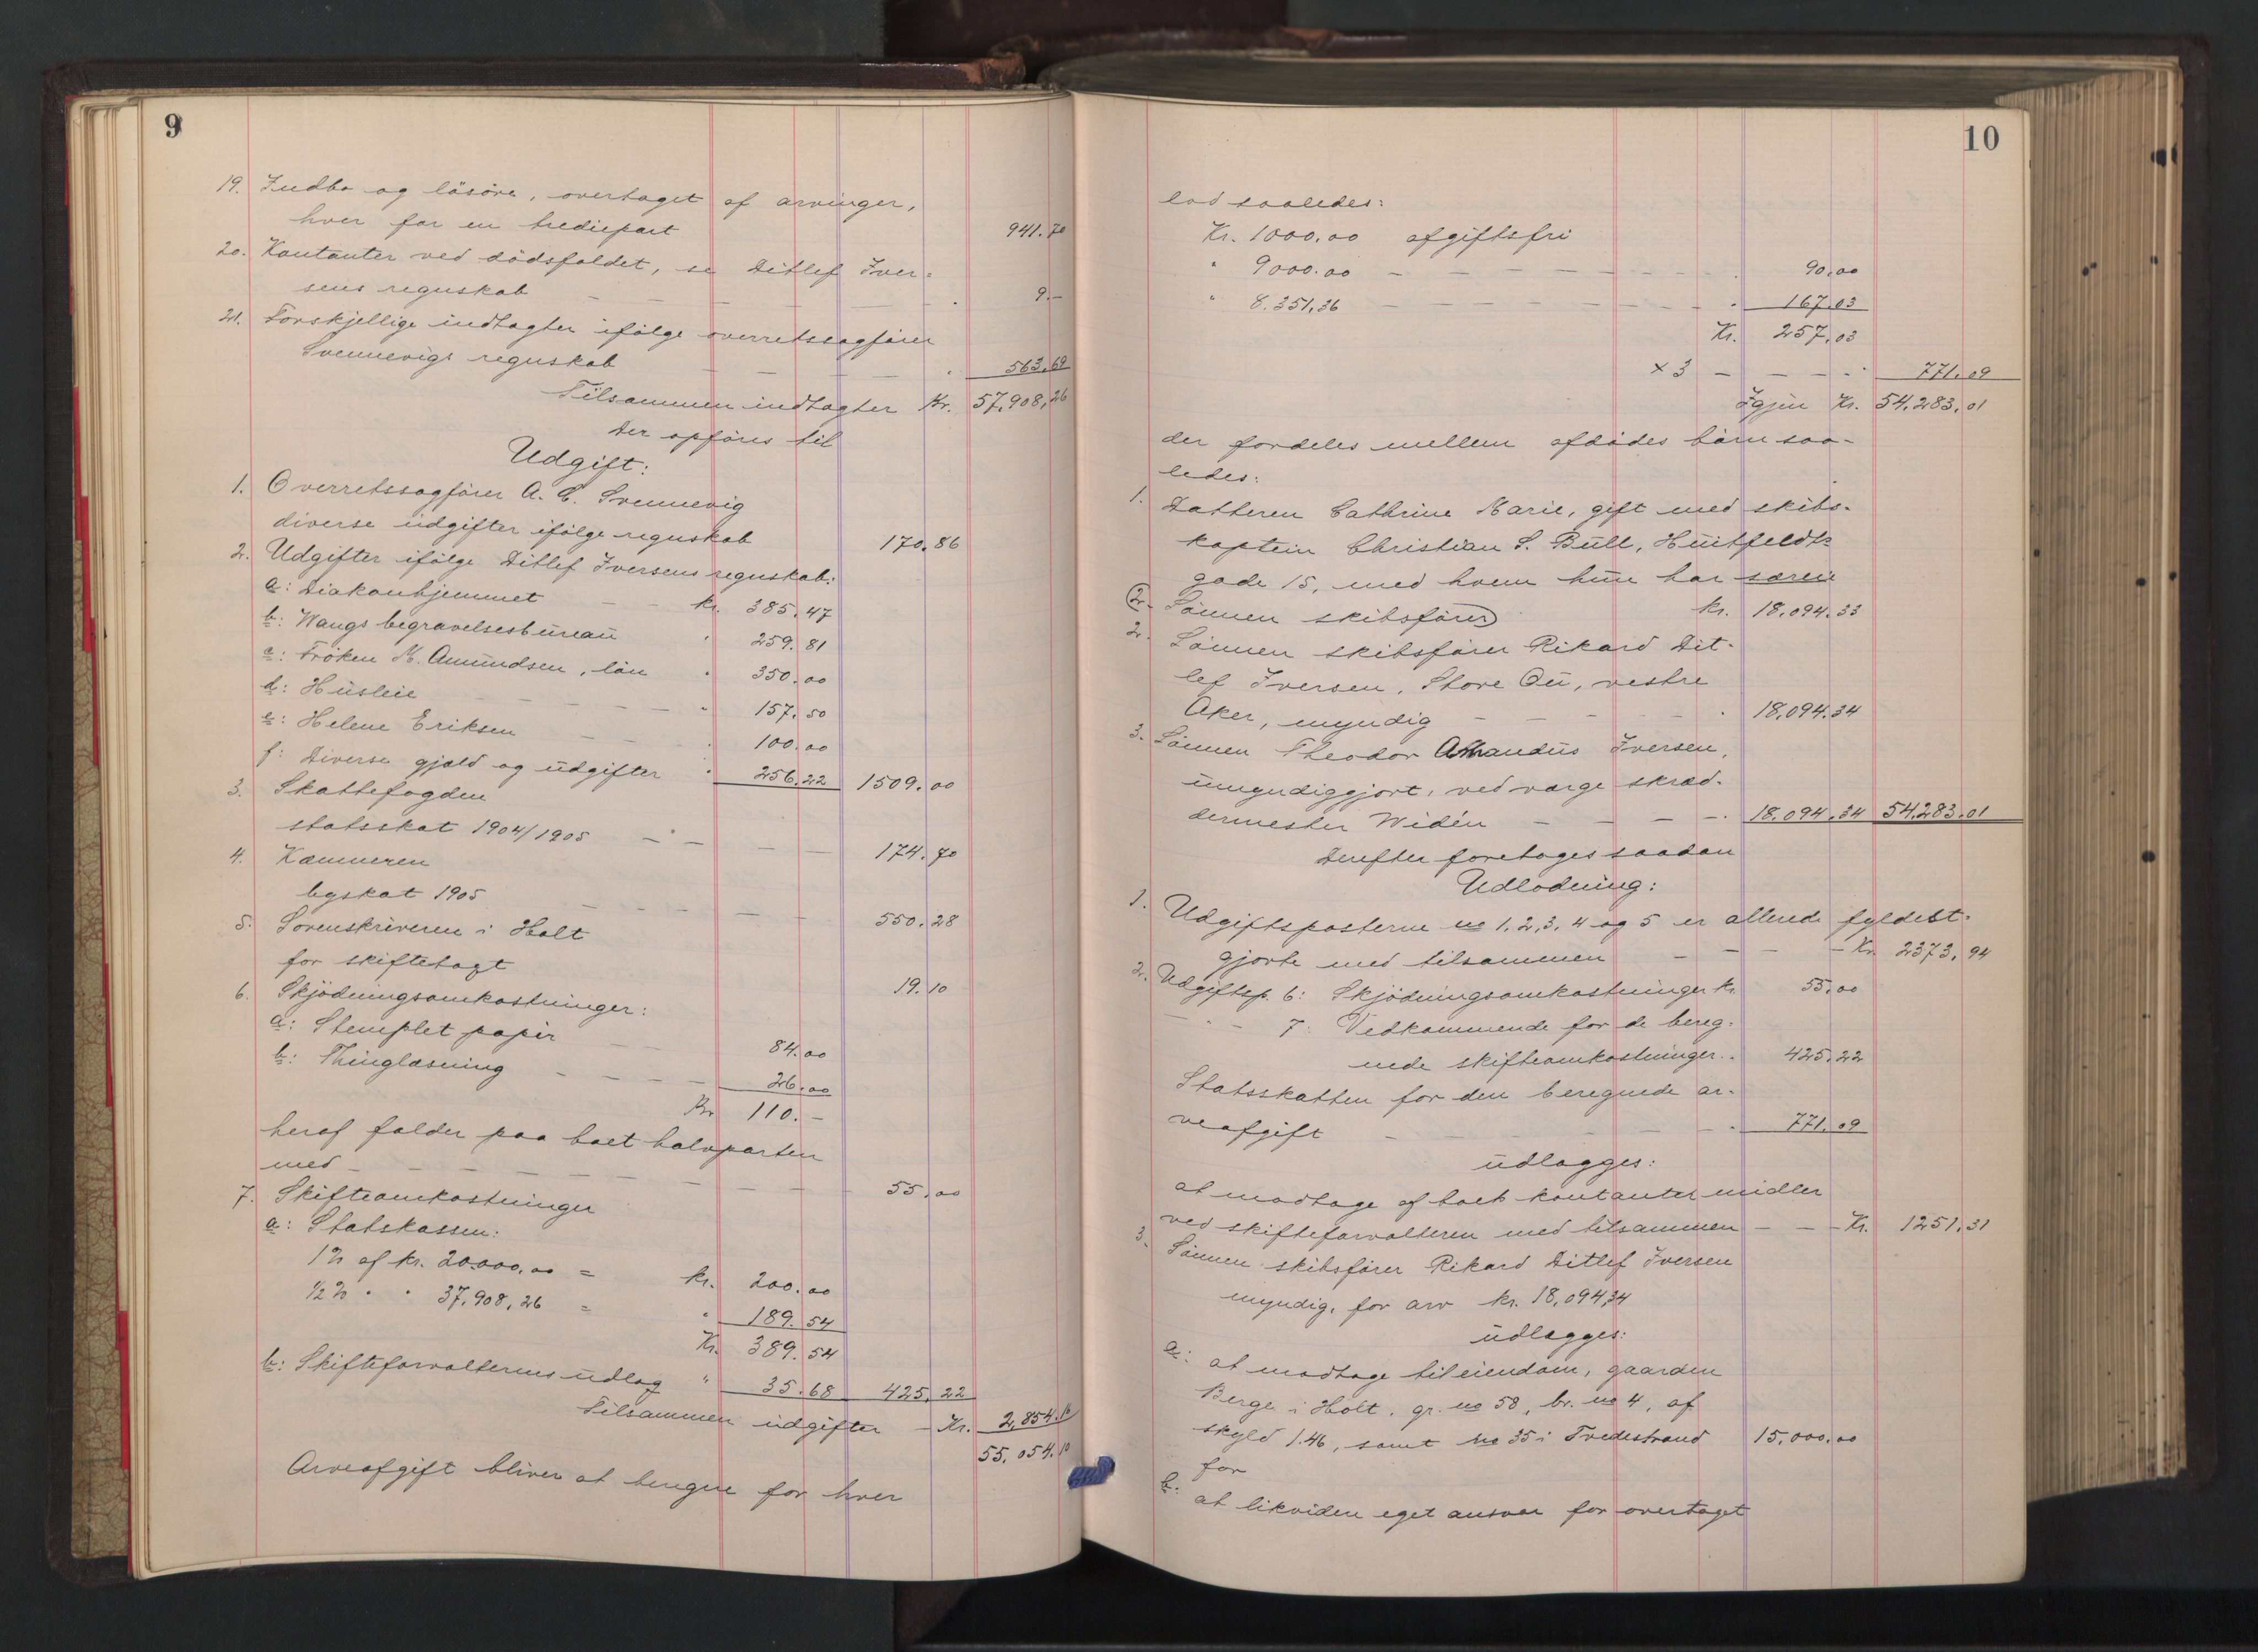 9
19. Indbo og løsøre, overtaget af arvinger,
hver for en trediepart 941.70
20. Kontanter ved dødsfaldet, se Ditlef Iver-
sens regnskab — — — — — " 9.—
21. Forskjellige indtægter ifølge overretssagfører
Svennevigs regnskab — — — — " 563.69
Tilsammen indtægter Kr. 57,908,26
Der opføres til
Udgift:
1. Overretssagfører A. C. Svennevig
diverse udgifter ifølge regnskab 170.86
2. Udgifter ifølge Ditlef Iversens regnskab:
a: Diakonhjemmet — — kr. 385.47
b: Wangs begravelsesbureau " 259.81
c: Frøken M. Amundsen, løn " 350.00
d: Husleie — — — — " 157.50
e: Helene Eriksen — — " 100.00
f: Diverse gjæld og udgifter " 256.22 1509.00
3. Skattefogden
statsskat 1904/1905 — " — — — 174.70
4. Kæmneren
byskat 1905 — — — — — 550.28
5. Sorenskriveren i Holt
for skiftetagt 19.10
6. Skjødningsomkostninger:
a: Stemplet papir — — 84.00
b: Thinglæsning — — — — 26.00
Kr 110.—
heraf falder paa boet halvparten
med — — — — — — — — 55.00
7. Skifteomkostninger
a: Statskassen:
1% af kr. 20.000.00 = kr. 200.00
1/2 % " " 37,908,26 = " 189.54
Kr. 389.54
b: Skifteforvalterens udlæg " 35.68 425,22
Tilsammen udgifter — Kr. 2,854.16
55,054.10
Arveafgift bliver at beregne for hver
10
lod saaledes:
Kr. 1000.00 afgiftsfri
" 9000.00 — — — — — — — — " 90,00
" 8.351,36 — — — — — — — " 167.03
Kr. 257,03
× 3 — — — — " 771.09
Igjen Kr. 54,283,01
der fordeles mellem afdødes børn saa-
ledes:
1. Datteren Cathrine Marie, gift med skibs-
kaptein Christian S. Büll, Huitfeldts-
gade 15, med hvem hun har særeie
2. Sønnen skibsfører kr. 18,094.33
2. Sønnen skibsfører Rikard Dit-
lef Iversen, Store Ou, vestre
Aker, myndig — — — — — " 18,094.34
3. Sønnen Theodor Amandus Iversen,
umyndiggjort, ved værge skræd-
dermester Widén — — — — " 18.094.34 54,283.01
Derefter foretages saadan
Udlodning:
1. Udgiftsposterne no 1, 2, 3, 4 og 5 er allerede fyldest-
gjorte med tilsammen — — — — Kr. 2373,94
2. Udgiftsp. 6: Skjødningsomkostninger kr. 55,00
— " — 7: Vedkommende for de bereg-
nede skifteomkostninger " 425.22
Statsskatten for den beregnede ar-
veafgift — — — — — — " 771.09
udlægges:
at modtage af boets kontanter midler
ved skifteforvalteren med tilsammen — — — Kr. 1251,31
3. Sønnen skibsfører Rikard Ditlef Iversen
myndig, for arv kr. 18,094,34
udlægges:
a: at modtage til eiendom, gaarden
Berge i Holt, gr. no 58, br. no 4, af
skyld 1.46, samt no 35 i Tvedestrand 15,000.00
for
b: at likvidere eget ansvar for overtaget